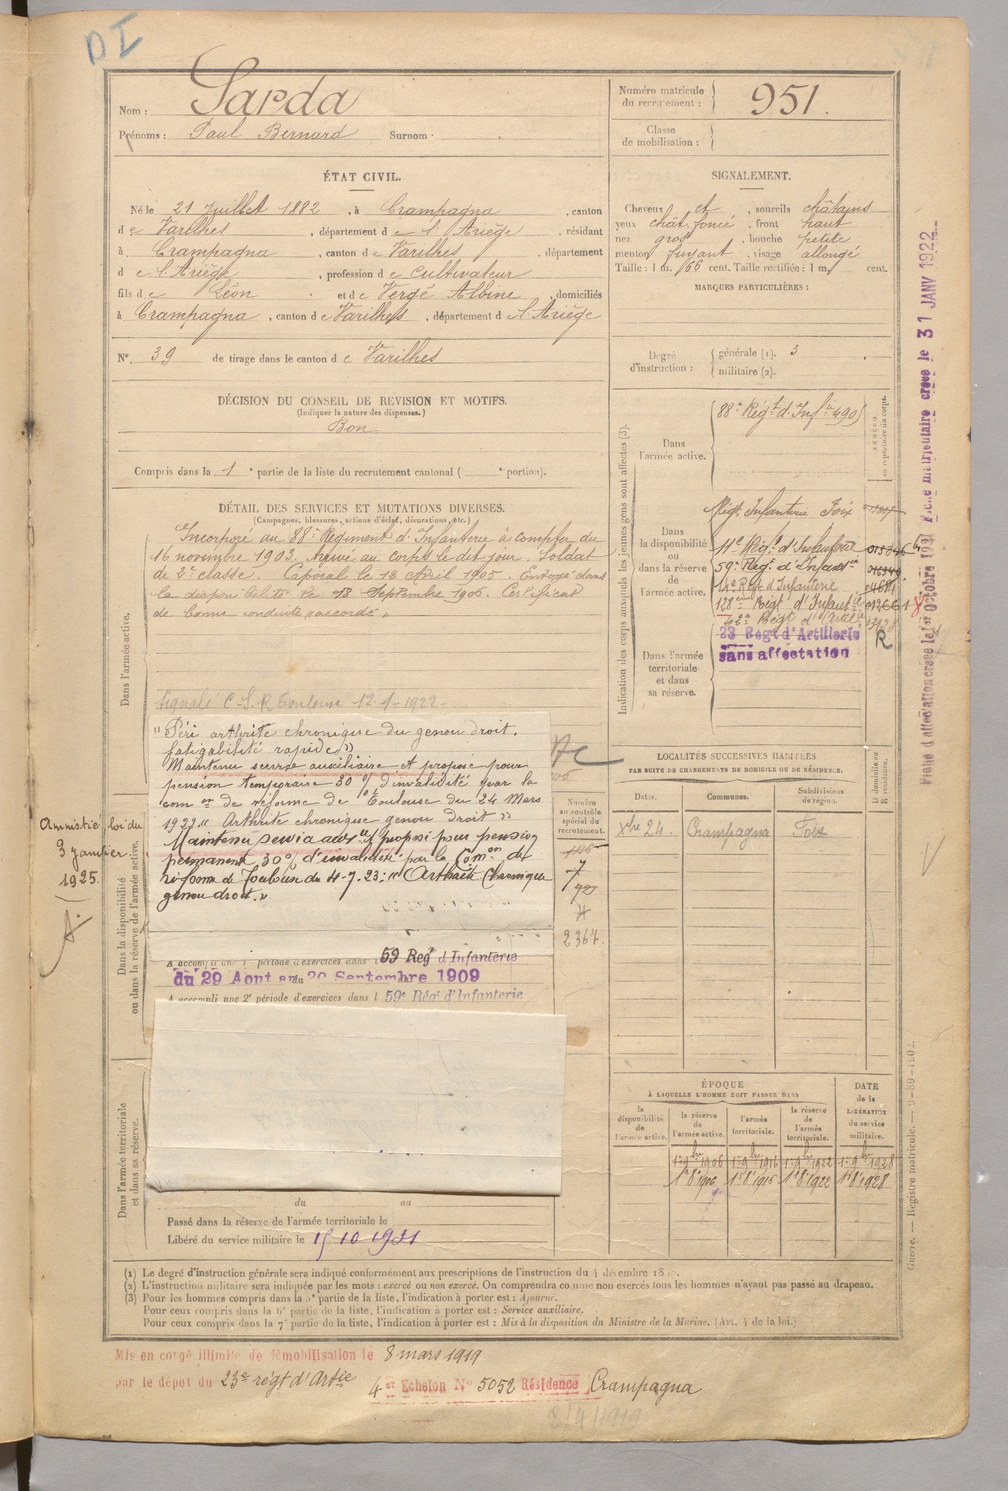 DI
Nom : Sarda
Prénoms : Paul Bernard Surnom :
Numéro matricule du recrutement : 951.
Classe de mobilisation :
ÉTAT CIVIL.
Né le 21 Juillet 1882, à Crampagna, canton
de Varilhes, département de l'Ariège, résidant
à Crampagna, canton de Varilhes, département
de l'Ariège, profession de cultivateur
fils de Léon et de Vergé Albine, domiciliés
à Crampagna, canton de Varilhes, département de l'Ariège
N° 39 de tirage dans le canton de Varilhes
SIGNALEMENT.
Cheveux et, sourcils châtains
yeux chât. foncé, front haut
nez gros, bouche petite
menton fuyant, visage allongé
Taille : 1 m. 66 cent. Taille rectifiée : 1 m. cent.
MARQUES PARTICULIÈRES :
Degré d'instruction : générale (1). 3
militaire (2).
DÉCISION DU CONSEIL DE REVISION ET MOTIFS.
(Indiquer la nature des dispenses.)
Bon
Compris dans la 1e partie de la liste du recrutement cantonal ( e portion).
DÉTAIL DES SERVICES ET MUTATIONS DIVERSES.
(Campagnes, blessures, actions d'éclat, décorations, etc.)
Dans l'armée active.
Incorporé au 88e Régiment d'Infanterie à compter du
16 novembre 1903. Arrivé au corps le dit jour. Soldat
de 2e classe. Caporal le 13 Avril 1905. Envoyé dans
la disponibilité le 18 Septembre 1906. Certificat
de bonne conduite "accordé"
Signalé C.S.R Toulouse 12-1-1922-
"Péri arthrite chronique du genou droit.
fatigabilité rapide"
Maintenu service auxiliaire et proposé pour
pension temporaire 30 % d'invalidité par la
com on de réforme de Toulouse du 24 Mars
1922 "Arthrite chronique genou droit"
Maintenu servia aux re et proposé pour pension
permanente 30 % d'invalidité par la Com on de
réforme de Toulouse du 4-7-23 : "Arthrite chronique
genou droit."
Amnistié loi du
3 janvier
1925
Dans la disponibilité ou dans la réserve de l'armée active.
A accompli une 1e période d'exercices dans l 59 Regt d'Infanterie
du 29 Aout au 20 Septembre 1909
A accompli une 2e période d'exercices dans l 59e Régt d'Infanterie
Dans l'armée territoriale et dans sa réserve.
du au
Passé dans la réserve de l'armée territoriale le
Libéré du service militaire le 15 10 1931
Indication des corps auxquels les jeunes gens sont affectés (3).
Dans l'armée active.
88e Régt d'Infie 490
NUMÉRO au répertoire du corps.
Dans la disponibilité ou dans la réserve de l'armée active.
Régt Infanterie Foix
59e Régt d'Infanterie
14e Regt d'Infanterie
Dans l'armée territoriale et dans sa réserve.
23 Régt d'Artillerie
sans affectation
R
Fiche matriculaire créée le 31 JANV 1922
LOCALITÉS SUCCESSIVES HABITÉES
PAR SUITE DE CHANGEMENTS DE DOMICILE OU DE RÉSIDENCE.
Dates. Communes. Subdivisions de région. D domicile ou R résidence.
Xbre 24. Crampagna Foix
Numéro au contrôle spécial du recrutement.
7
2367.
ÉPOQUE
À LAQUELLE L'HOMME DOIT PASSER DANS
la disponibilité de l'armée active. la réserve de l'armée active. l'armée territoriale. la réserve de l'armée territoriale.
DATE de la LIBÉRATION du service militaire.
1er 9bre 1906 1er 9bre 1916 1er 9bre 1922 1er 9bre 1928
1er 8 1906 1er 8 1916 1er 8 1922 1er 8 1928
(1) Le degré d'instruction générale sera indiqué conformément aux prescriptions de l'instruction du 4 décembre
(2) L'instruction militaire sera indiquée par les mots : exercé ou non exercé. On comprendra comme non exercés tous les hommes n'ayant pas passé au drapeau.
(3) Pour les hommes compris dans la partie de la liste, l'indication à porter est : Ajourné.
Pour ceux compris dans la 6e partie de la liste, l'indication à porter est : Service auxiliaire.
Pour ceux compris dans la 7e partie de la liste, l'indication à porter est : Mis à la disposition du Ministre de la Marine. (Art. 4 de la loi.)
Guerre. — Registre matricule. — 9-89-1902.
Mis en congé illimité de démobilisation le 8 mars 1919
par le dépot du 23e régt d'Artie 4er Echelon N° 5052 Résidence Crampagna